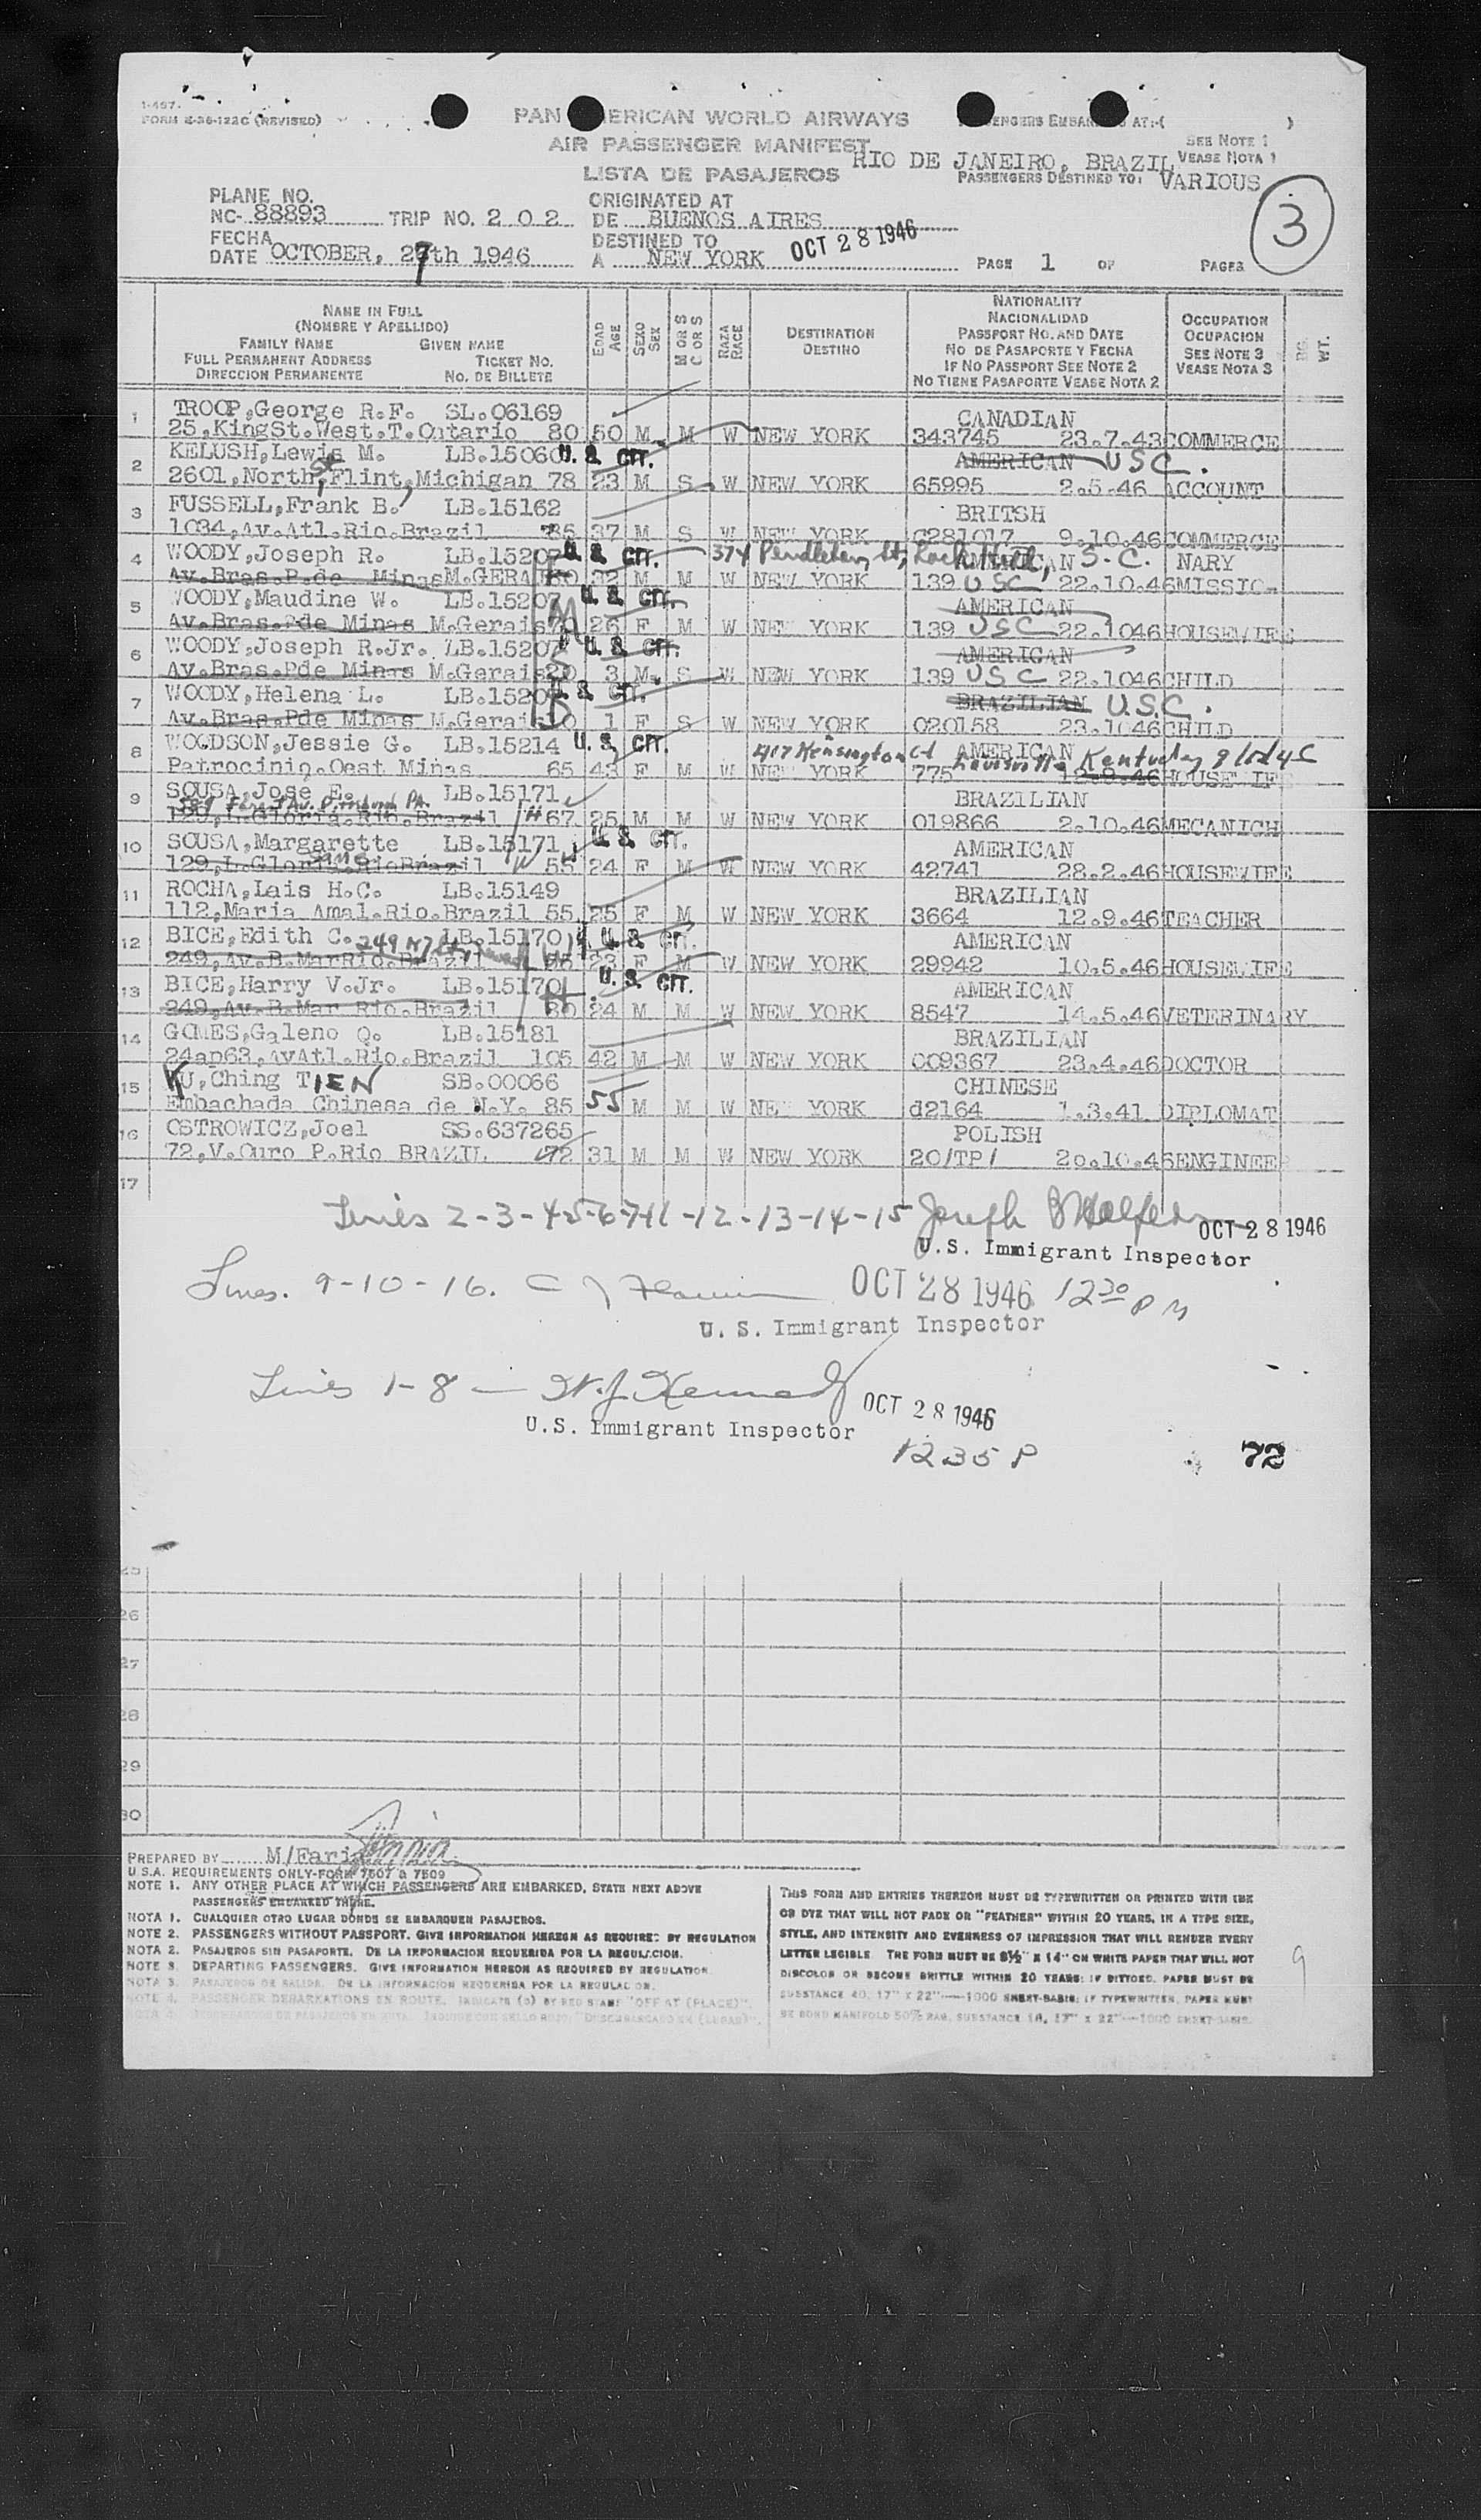 1-497.
FORM 4-36-122C (REVISED)
PAN AMERICAN WORLD AIRWAYS
AIR PASSENGER MANIFEST
LISTA DE PASAJEROS
PASSENGERS EMBARKED AT:-( )
SEE NOTE 1
VEASE NOTA 1
RIO DE JANEIRO, BRAZIL
PASSENGERS DESTINED TO: VARIOUS
3
PLANE NO.
NC- 88893 TRIP NO. 2 0 2
ORIGINATED AT
DE BUENOS AIRES
FECHA
DATE OCTOBER, 27th 1946
DESTINED TO
A NEW YORK OCT 28 1946
PAGE 1 OF PAGES
NAME IN FULL
(NOMBRE Y APELLIDO)
FAMILY NAME GIVEN NAME
FULL PERMANENT ADDRESS TICKET NO.
DIRECCION PERMANENTE NO. DE BILLETE
EDAD AGE
SEXO SEX
M OR S C OR S
RAZA RACE
DESTINATION
DESTINO
NATIONALITY
NACIONALIDAD
PASSPORT NO. AND DATE
NO DE PASAPORTE Y FECHA
IF NO PASSPORT SEE NOTE 2
NO TIENE PASAPORTE VEASE NOTA 2
OCCUPATION
OCUPACION
SEE NOTE 3
VEASE NOTA 3
WT.
1 TROOP,George R.F. SL.06169 CANADIAN
25,KingSt.West.T.Ontario 80 50 M M W NEW YORK 343745 23.7.43 COMMERCE
2 KELUSH,Lewis M. LB.15060 U. S. CIT. AMERICAN USC.
2601,North St Flint,Michigan 78 23 M S W NEW YORK 65995 2.5.46 ACCOUNT
3 FUSSELL,Frank B. LB.15162 BRITSH
1034,Av.Atl.Rio.Brazil 85 37 M S W NEW YORK C281017 9.10.46 COMMERCE
4 WOODY,Joseph R. LB.15207 U. S. CIT. 374 Pendleton St, Rock Hill, S.C. AMERICAN NARY
Av.Bras.P.de MinasM.GERAI 80 32 M M W NEW YORK 139 USC 22.10.46 MISSIO-
5 WOODY,Maudine W. LB.15207 U. S. CIT. AMERICAN
Av.Bras.Pde Minas M.Gerais 26 F M W NEW YORK 139 USC 22.1046 HOUSEWIFE
6 WOODY,Joseph R.Jr. LB.15207 U. S. CIT. AMERICAN
Av.Bras.Pde Minas M.Gerais 20 3 M S W NEW YORK 139 USC 22.1046 CHILD
7 WOODY,Helena L. LB.1520 U. S. CIT. BRAZILIAN U.S.C.
Av.Bras.Pde Minas M.Gerais 10 1 F S W NEW YORK 020158 23.1046 CHILD
8 WOODSON,Jessie G. LB.15214 U. S. CIT. Kensington Ct Louisville Kentucky AMERICAN
Patrocinio.Oest Minas 65 43 F M W NEW YORK 775 12.9.46 HOUSEWIFE
9 SOUSA,Jose E. LB.15171 BRAZILIAN
129,L.Gloria.Rio.Brazil H 67 25 M M W NEW YORK 019866 2.10.46 MECANICH
10 SOUSA,Margarette LB.15171 U. S. CIT. AMERICAN
129,L.Gloria.RioBrazil W 55 24 F M W NEW YORK 42741 28.2.46 HOUSEWIFE
11 ROCHA,Lais H.C. LB.15149 BRAZILIAN
112,Maria Amal.Rio.Brazil 55 25 F M W NEW YORK 3664 12.9.46 TEACHER
12 BICE,Edith C. LB.15170 U. S. CIT. AMERICAN
249,Av.B.MarRio.Brazil 23 F M W NEW YORK 29942 10.5.46 HOUSEWIFE
13 BICE,Harry V.Jr. LB.15170 U. S. CIT. AMERICAN
249,Av.B.Mar Rio.Brazil 80 24 M M W NEW YORK 8547 14.5.46 VETERINARY
14 GOMES,Galeno Q. LB.15181 BRAZILIAN
24ap63,AvAtl.Rio.Brazil 105 42 M M W NEW YORK 009367 23.4.46 DOCTOR
15 KU,Ching TIEN SB.00066 CHINESE
Embachada Chinesa de N.Y. 85 55 M M W NEW YORK d2164 1.3.41 DIPLOMAT
16 OSTROWICZ,Joel SS.637265 POLISH
72,V.Ouro P.Rio BRAZIL 72 31 M M W NEW YORK 20/TP/ 20.10.46 ENGINEER
17
Lines 2-3-4-5-6-7-11-12-13-14-15 Joseph OCT 28 1946
U.S. Immigrant Inspector
Lines. 9-10-16. OCT 28 1946 12 30 PM
U. S. Immigrant Inspector
Lines 1-8 — W.J. Kennedy OCT 28 1946
U.S. Immigrant Inspector
1235 P
72
25
26
27
28
29
30
PREPARED BY M/Faria
U.S.A. REQUIREMENTS ONLY-FORM 7507 & 7509
NOTE 1. ANY OTHER PLACE AT WHICH PASSENGERS ARE EMBARKED, STATE NEXT ABOVE
PASSENGERS EMBARKED THERE.
NOTA 1. CUALQUIER OTRO LUGAR DONDE SE EMBARQUEN PASAJEROS.
NOTE 2. PASSENGERS WITHOUT PASSPORT. GIVE INFORMATION HEREON AS REQUIRED BY REGULATION
NOTA 2. PASAJEROS SIN PASAPORTE. DE LA INFORMACION REQUERIDA POR LA REGULACION.
NOTE 3. DEPARTING PASSENGERS. GIVE INFORMATION HEREON AS REQUIRED BY REGULATION.
NOTA 3. PASAJEROS DE SALIDA. DE LA INFORMACION REQUERIDA POR LA REGULACION.
NOTE 4. PASSENGER DEBARKATIONS EN ROUTE. INDICATE (S) BY RED STAMP "OFF AT (PLACE)".
THIS FORM AND ENTRIES THEREON MUST BE TYPEWRITTEN OR PRINTED WITH INK
OR DYE THAT WILL NOT FADE OR "FEATHER" WITHIN 20 YEARS, IN A TYPE SIZE,
STYLE, AND INTENSITY AND EVENNESS OF IMPRESSION THAT WILL RENDER EVERY
LETTER LEGIBLE. THE FORM MUST BE 8½" X 14" ON WHITE PAPER THAT WILL NOT
DISCOLOR OR BECOME BRITTLE WITHIN 20 YEARS; IF DITTOED, PAPER MUST BE
SUBSTANCE 40, 17" X 22"—1000 SHEET-BASIS; IF TYPEWRITTEN, PAPER MUST
BE BOND MANIFOLD 50% RAG, SUBSTANCE 18, 17" X 22"—1000 SHEET BASIS.
9